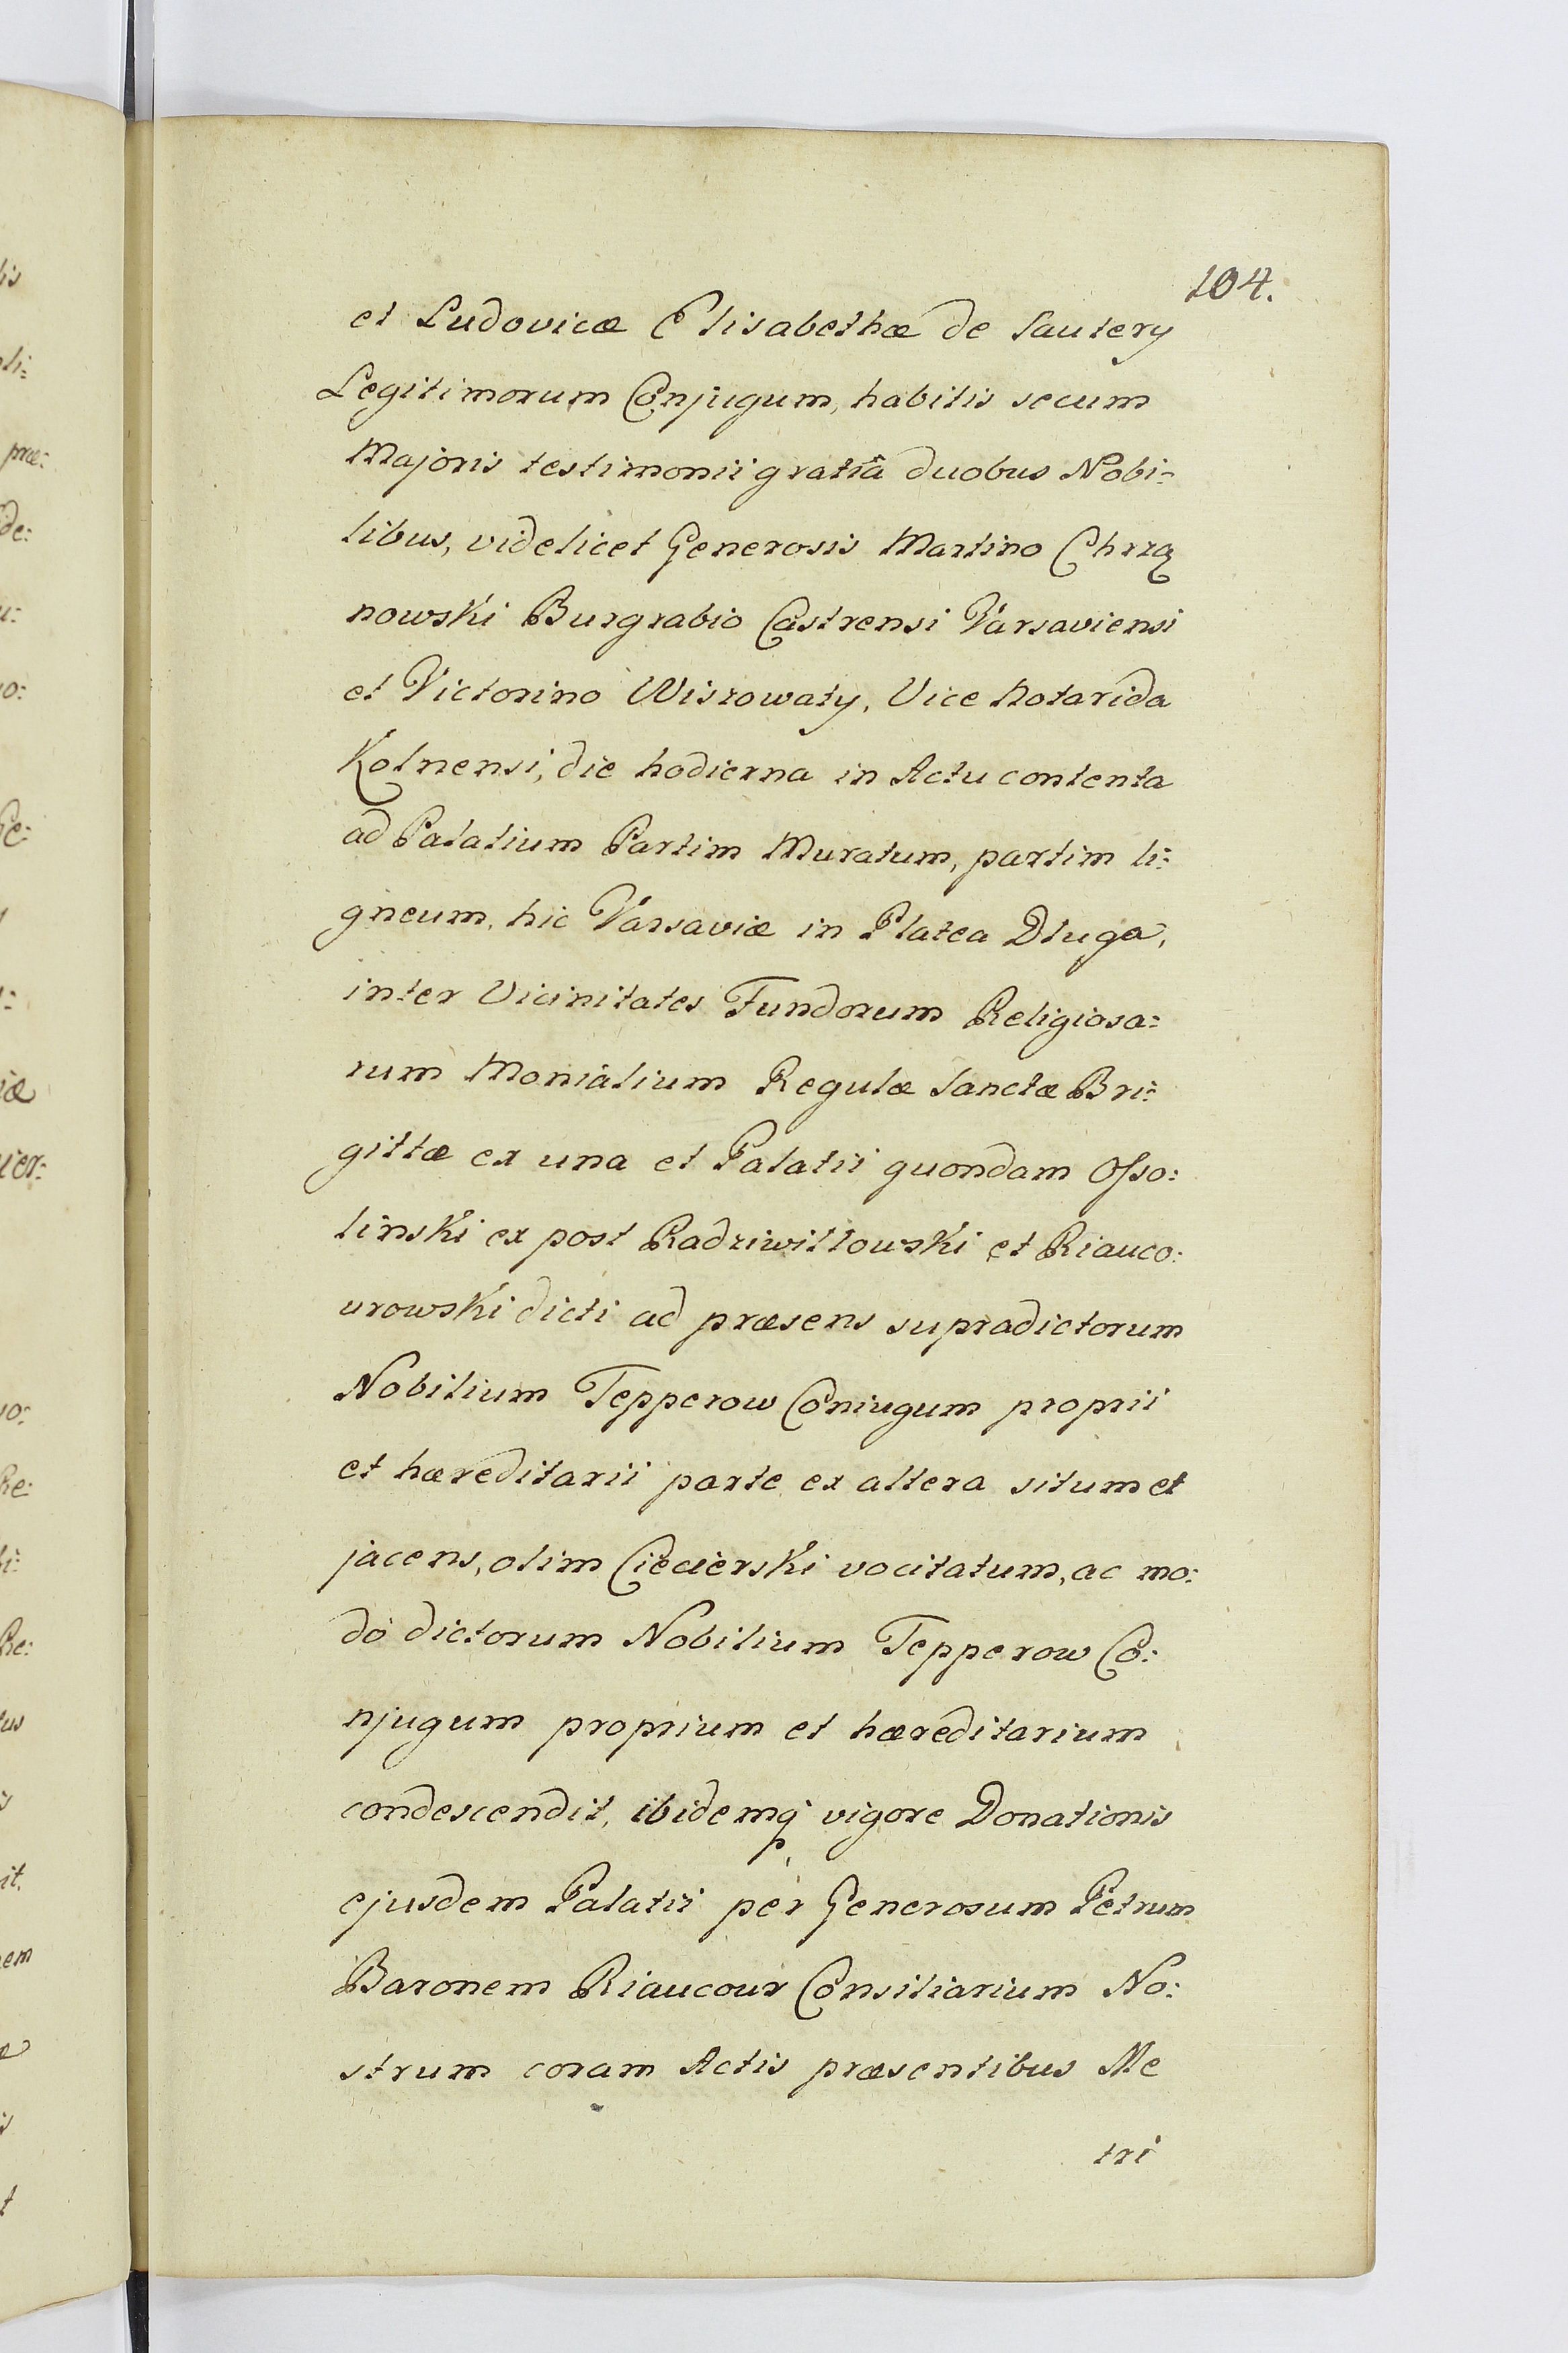 104.
et Ludovicæ Elisabethæ de Sautery
Legitimorum Conjugum, habitis secum
Majoris testimonii gratiâ duobus Nobi=
libus, videlicet Generosis Martino Chrzą
nowski Burgrabio Castrensi Varsaviensi
et Victorino Wiszowaty, Vice Notarida
Kolnensi, die hodierna in Actu contenta
ad Palatium Partim Muratum, partim li=
gneum, hic Varsaviæ in Platea Długa,
inter Vicinitates Fundorum Religiosa=
rum Monialium Regulæ Sanctæ Bri=
gittæ ex una et Palatii quondam Osso:
linski ex post Radziwiłłowski et Riauco:
urowski dicti ad præsens supradictorum
Nobilium Tepperow Coniugum proprii
et hæreditarii parte ex altera situm et
jacens, olim Ciecierski vocitatum, ac mo:
do dictorum Nobilium Tepperow Co:
njugum proprium et hæreditarium
condescendit, ibidemq vigore Donationis
ejusdem Palatii per Generosum Petrum
Baronem Riaucour Consiliarium No:
strum coram Actis præsentibus Me
tri
lis
oli=
præ:
de:
u:
no:
Ge:
iæ
uer:
no:
Re:
li:
Re:
tus
it.
em